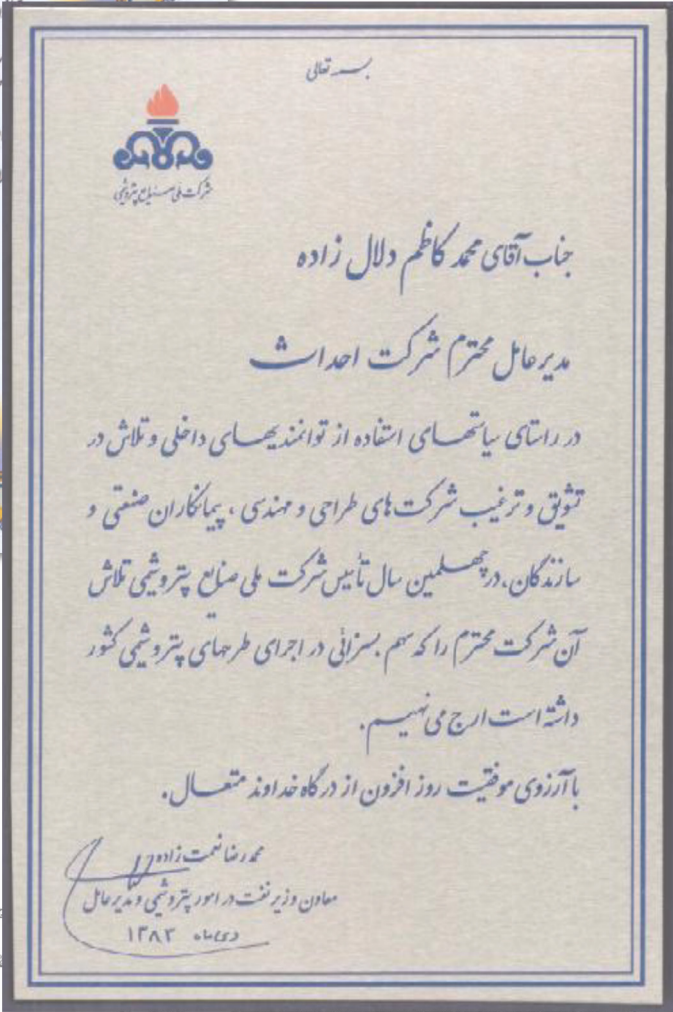 بسمه تعالی
شرکت ملی صنایع پتروشیمی
جناب آقای محمد کاظم دلال زاده
مدیرعامل محترم شرکت احداث
در راستای سیاستهای استفاده از توانمندیهای داخلی و تلاش در
تشویق و ترغیب شرکت های طراحی و مهندسی ، پیمانکاران صنعتی و
سازندگان، در چهلمین سال تأسیس شرکت ملی صنایع پتروشیمی تلاش
آن شرکت محترم را که سهم بسزائی در اجرای طرحهای پتروشیمی کشور
داشته است ارج می نهیم.
با آرزوی موفقیت روز افزون از درگاه خداوند متعال.
محمدرضا نعمت زاده
معاون وزیر نفت در امور پتروشیمی و مدیرعامل
دی ماه ۱۳۸۳